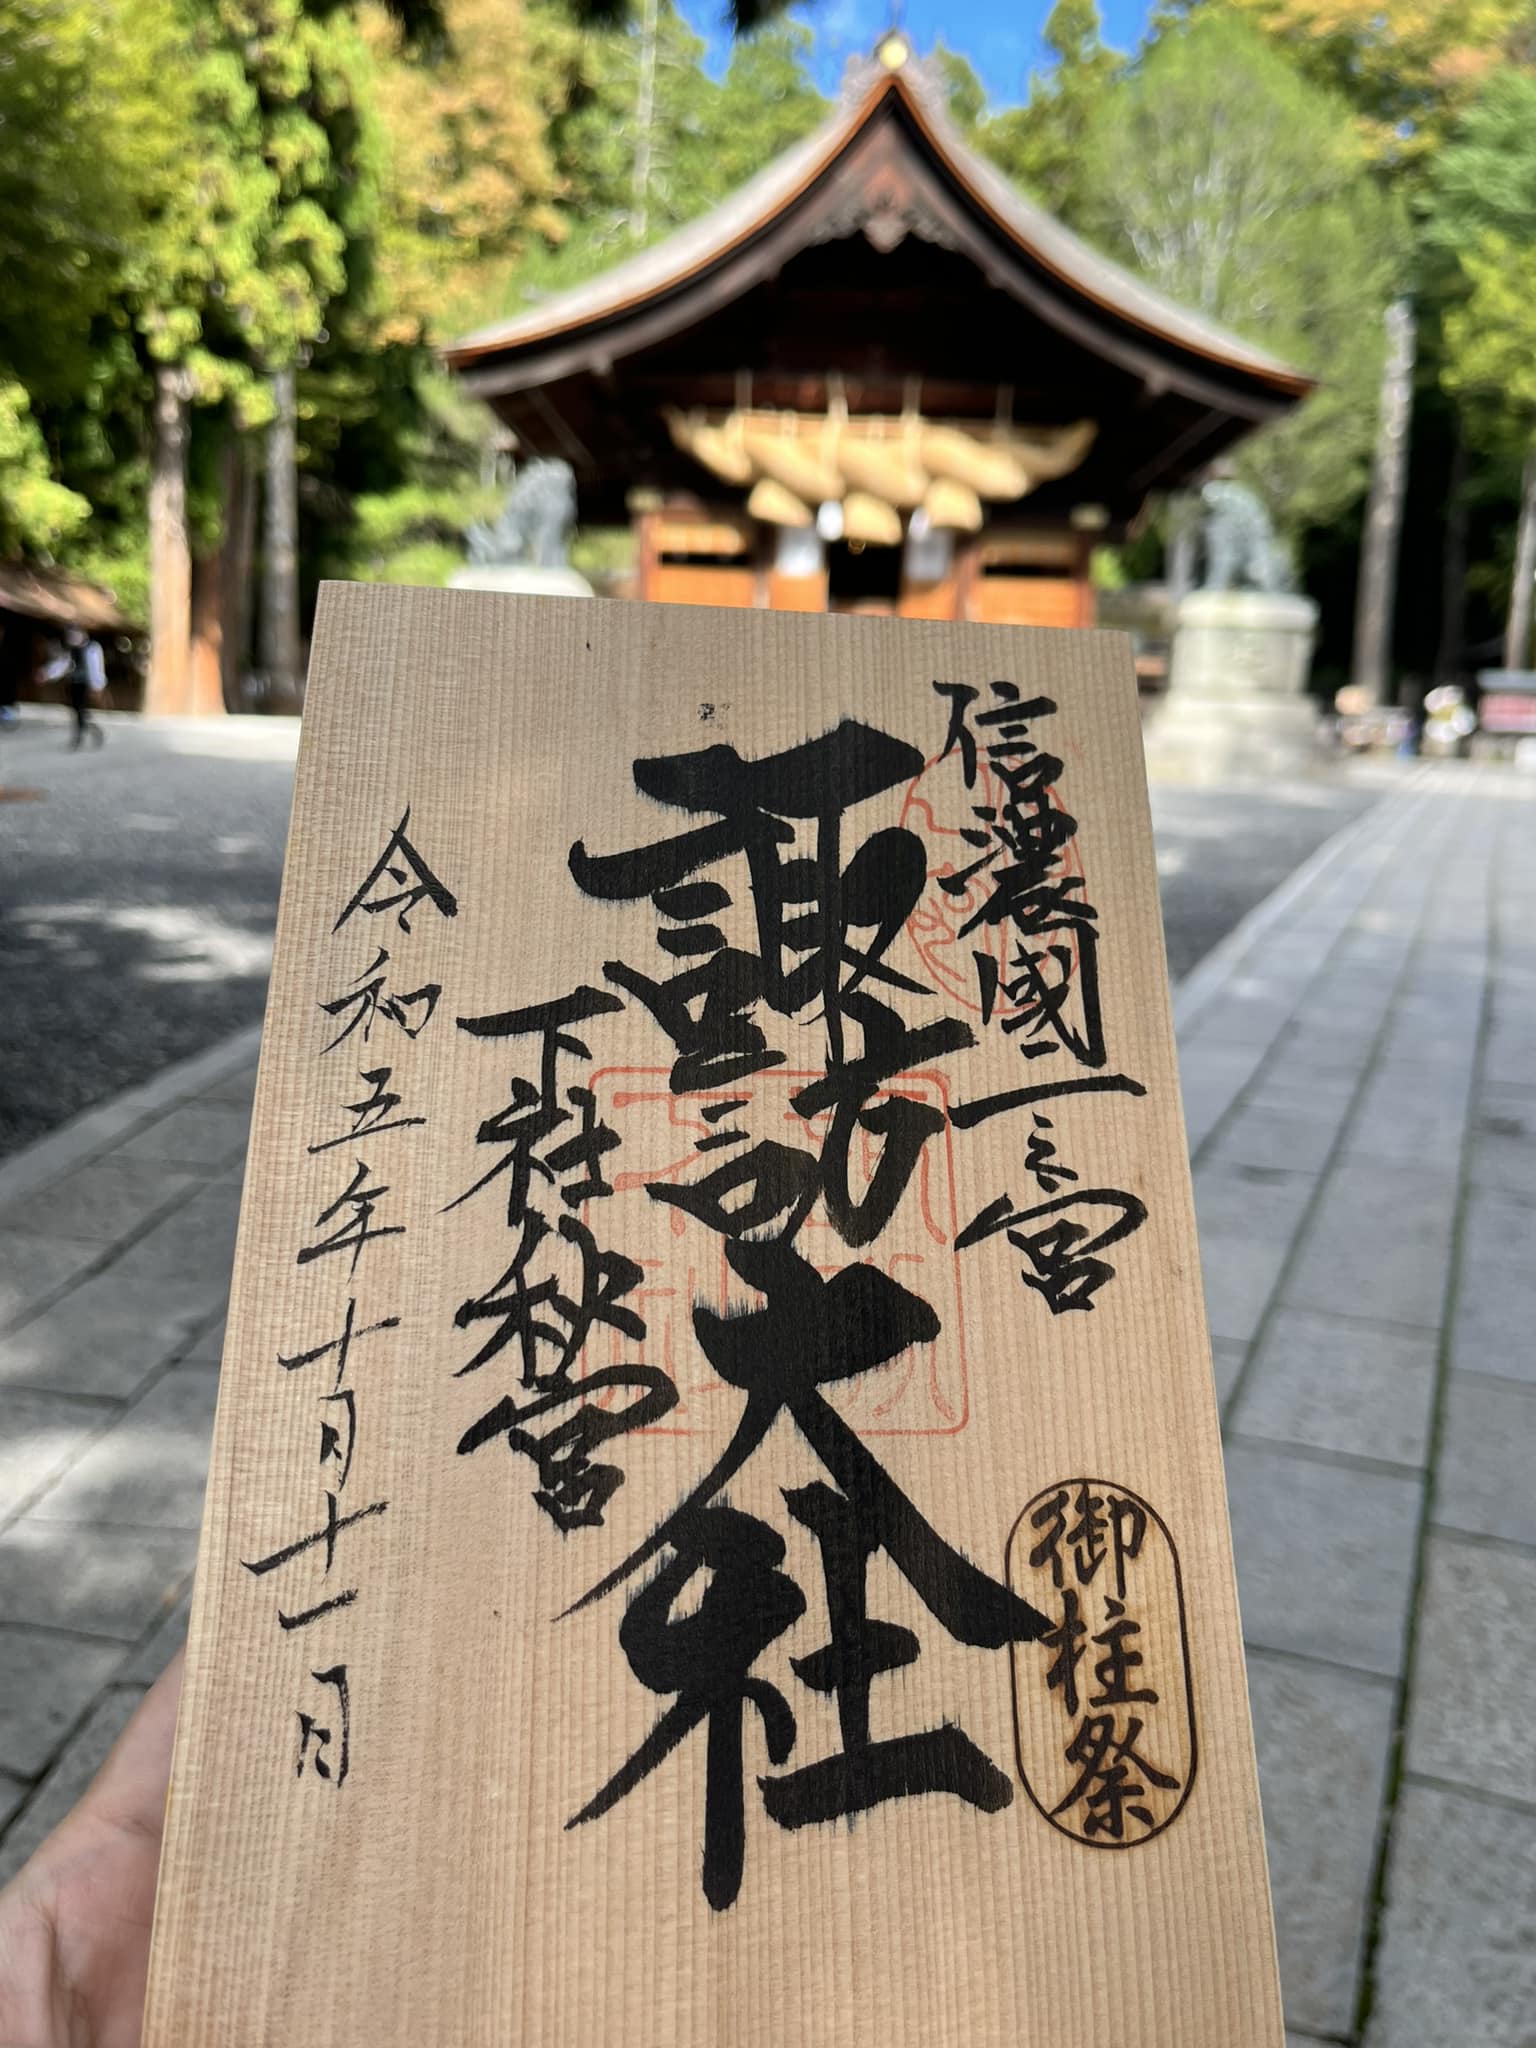 信濃國一之宮
諏方諏訪大社
下社秋宮
令和五年十月十一日
御柱祭